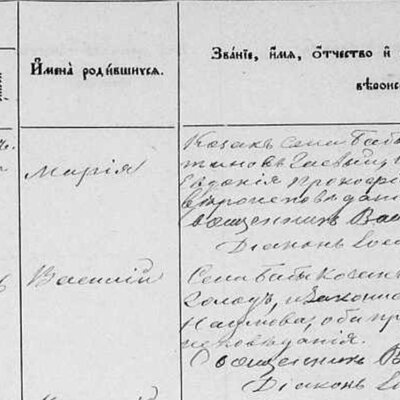 Имена родившихся.
Званіе, имя, отчество и
вѣрои
Марія
Козакъ Села Бабы
Евдокія Прокофі
вѣроисповѣдані
Священникъ Ва
Діаконъ
Василій
Села Бабы Козакъ
Холодъ, и законна
Наумова, оба пр
исповѣданія.
Священникъ В
Діаконъ